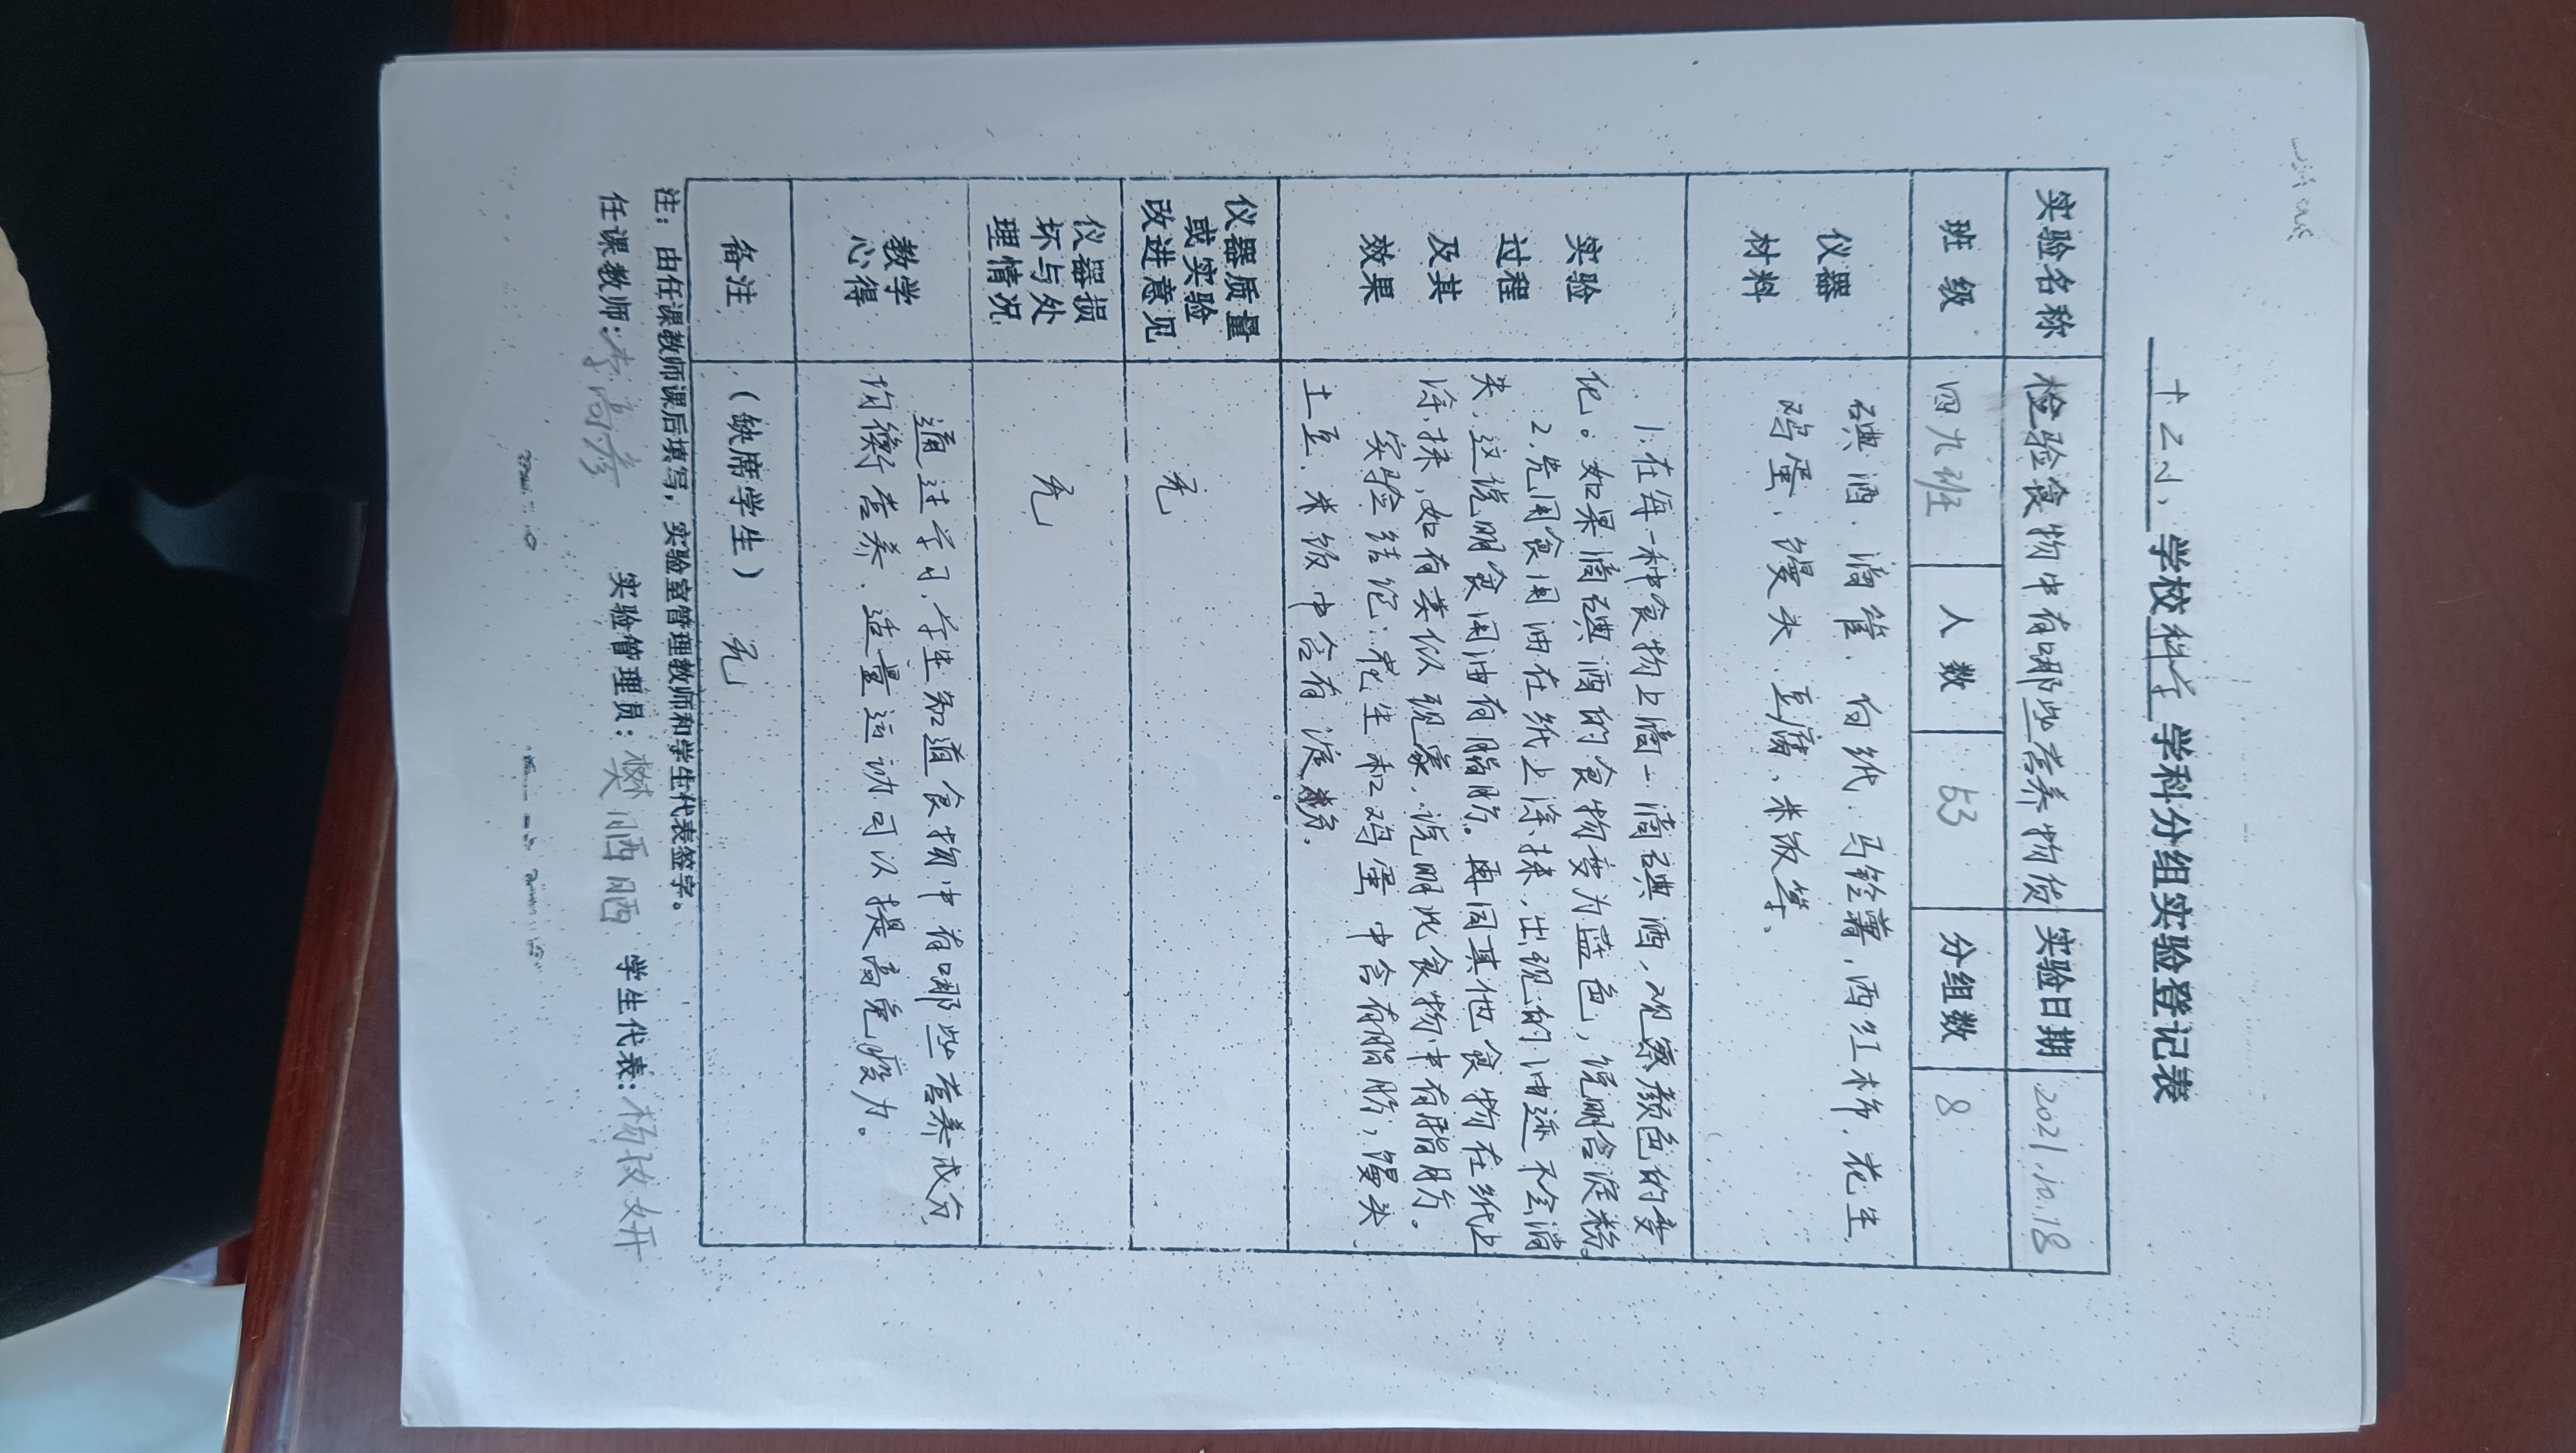 十乙小学校科学学科分组实验登记表
实验名称 检验食物中有哪些营养物质 实验日期 2021.10.18
班级 四九班 人数 53 分组数 8
仪器材料
碘酒、滴管、白纸、马铃薯、西红柿、花生、
鸡蛋、馒头、豆腐、米饭等、
实验过程及其效果
1.在每一种食物上滴一滴碘酒、观察颜色的变
化。如果滴碘酒的食物变为蓝色,说明含淀粉。
2.先用食用油在纸上涂抹,出现的油迹不会消
失,这说明食用油有脂肪。再同其他食物在纸上
涂抹,如有类似现象,说明此食物中有脂肪。
实验结论:花生和鸡蛋中含有脂肪,馒头、
土豆、米饭中含有淀粉。
仪器质量或实验改进意见
无
仪器损坏与处理情况
无
教学心得
通过学习,学生知道食物中有哪些营养成分,
均衡营养、适量运动可以提高免疫力。
备注 (缺席学生) 无
注:由任课教师课后填写,实验室管理教师和学生代表签字。
任课教师:李高彦 实验管理员:樊 学生代表:杨